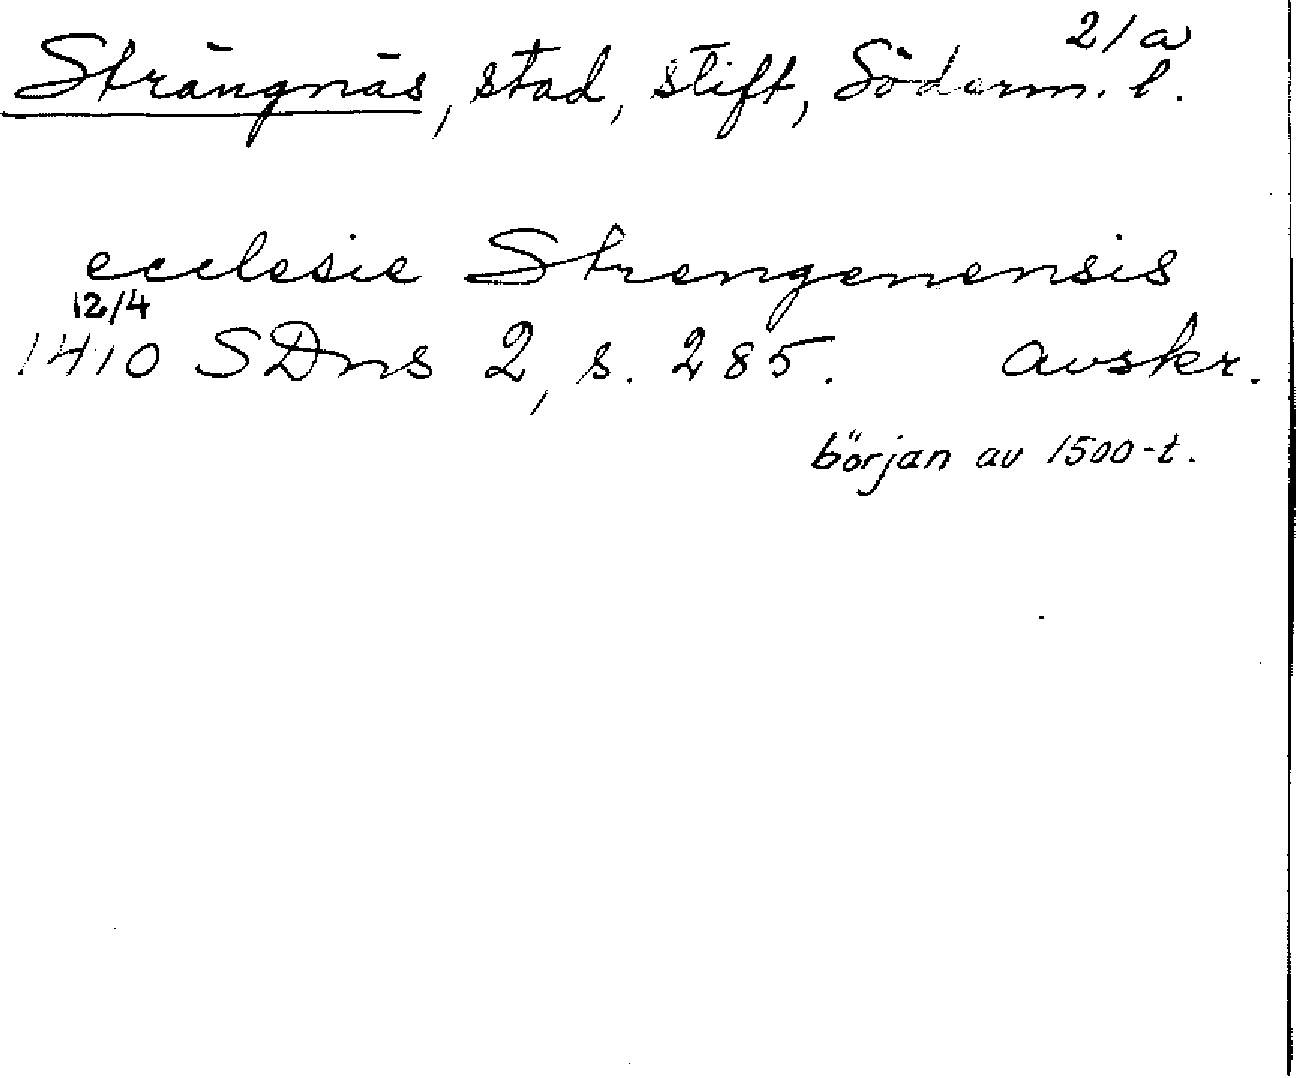 21a
Strängnäs, stad, stift, Söderm. l.
ecclesie Strengenensis
12/4
1410 SDns 2, s. 285. avskr.
början av 1500-t.